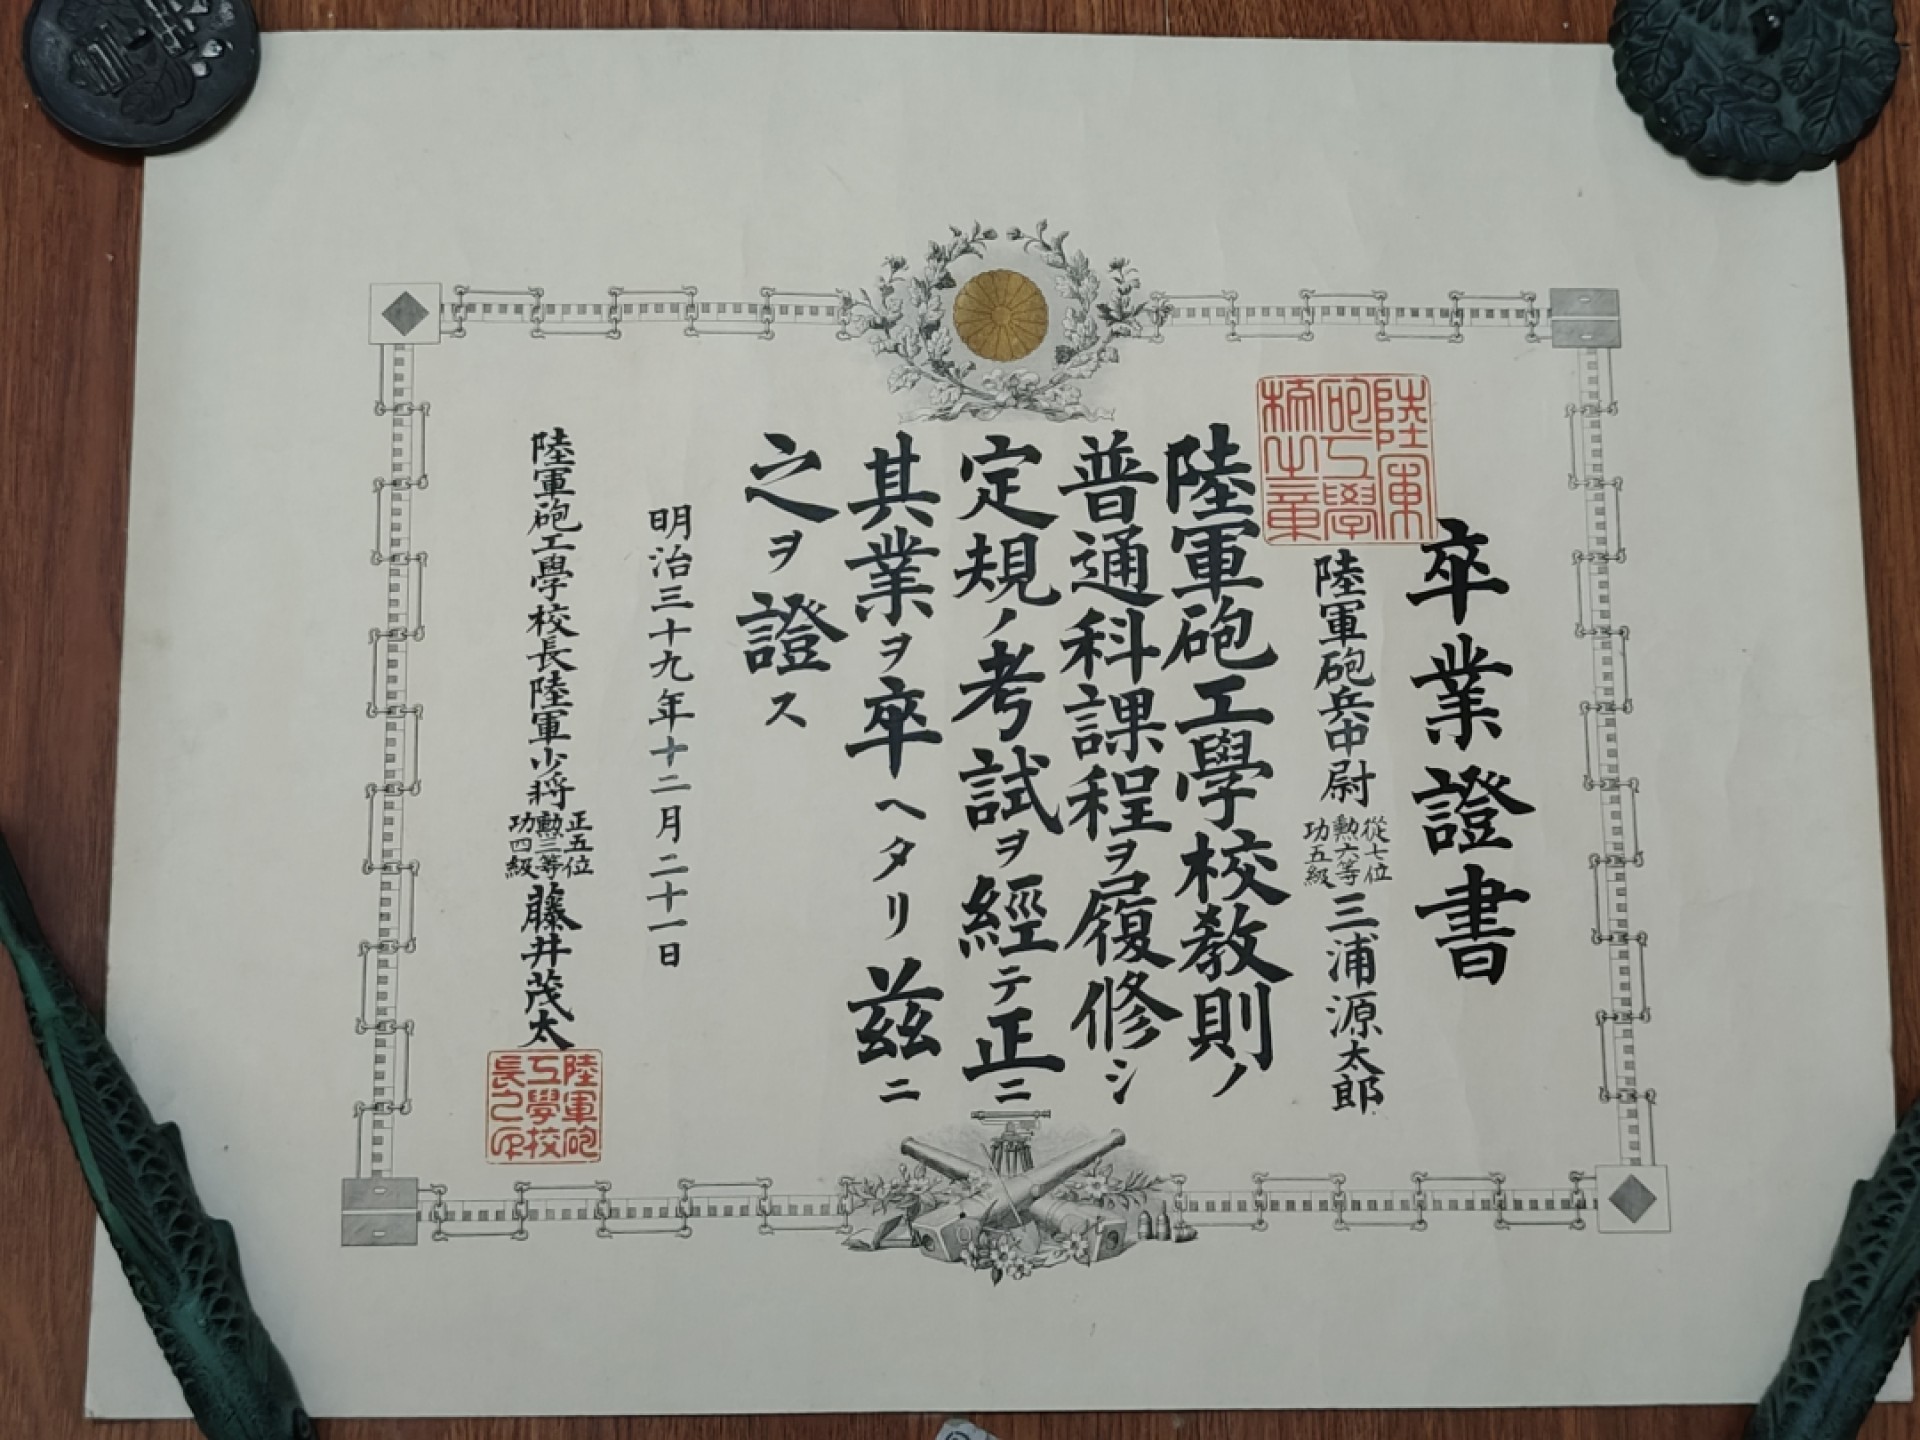 卒業證書
陸軍砲兵中尉 從七位 勲六等 功五級 三浦源太郎
陸軍砲工學校教則ノ
普通科課程ヲ履修シ
定規ノ考試ヲ經テ正ニ
其業ヲ卒ヘタリ茲ニ
之ヲ證ス
明治三十九年十二月二十一日
陸軍砲工學校長陸軍少將 正五位 勲三等 功四級 藤井茂太
陸軍
砲工學
校之章
陸軍砲
工學校
長之印